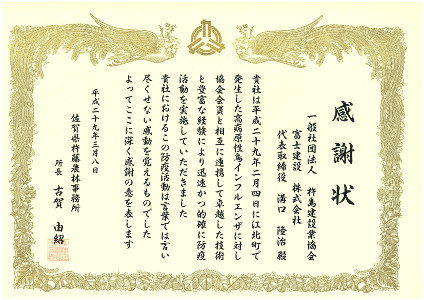 感謝状
一般社団法人 杵島建設業協会
富士建設 株式会社
代表取締役 溝口 隆治 殿
貴社は平成二十九年二月四日に江北町で
発生した高病原性鳥インフルエンザに対し
協会会員と相互に連携して卓越した技術
と豊富な経験により迅速かつ的確に防疫
活動を実施していただきました
貴社におけるこの防疫活動は言葉では言い
尽くせない感動を覚えるものでした
よってここに深く感謝の意を表します
平成二十九年三月八日
佐賀県杵藤農林事務所
所長 古賀 由紹